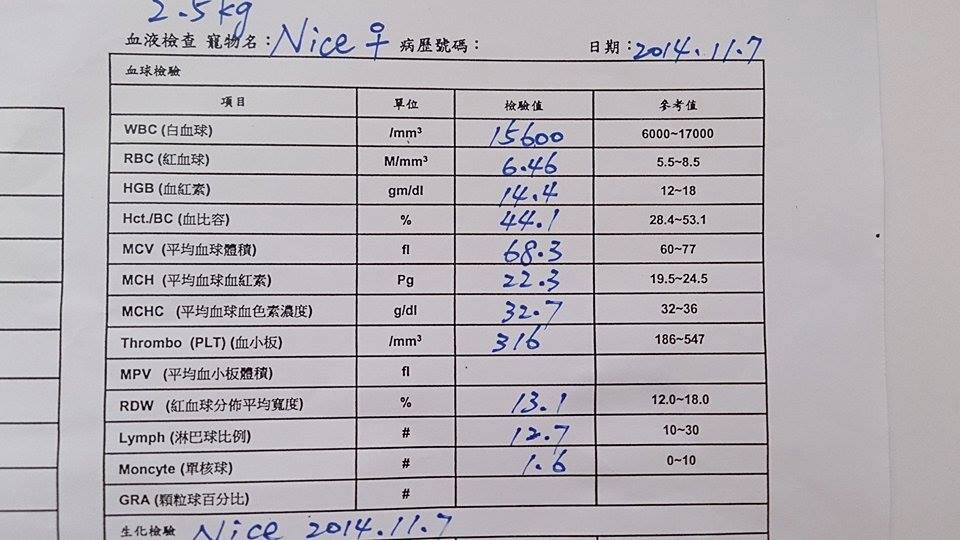 2.5kg
血液檢查 寵物名：Nice ♀ 病歷號碼： 日期：2014.11.7
血球檢驗
項目 單位 檢驗值 參考值
WBC (白血球) /mm³ 15600 6000~17000
RBC (紅血球) M/mm³ 6.46 5.5~8.5
HGB (血紅素) gm/dl 14.4 12~18
Hct./BC (血比容) % 44.1 28.4~53.1
MCV (平均血球體積) fl 68.3 60~77
MCH (平均血球血紅素) Pg 22.3 19.5~24.5
MCHC (平均血球血色素濃度) g/dl 32.7 32~36
Thrombo (PLT) (血小板) /mm³ 316 186~547
MPV (平均血小板體積) fl
RDW (紅血球分佈平均寬度) % 13.1 12.0~18.0
Lymph (淋巴球比例) # 12.7 10~30
Moncyte (單核球) # 1.6 0~10
GRA (顆粒球百分比) #
生化檢驗 Nice 2014.11.7